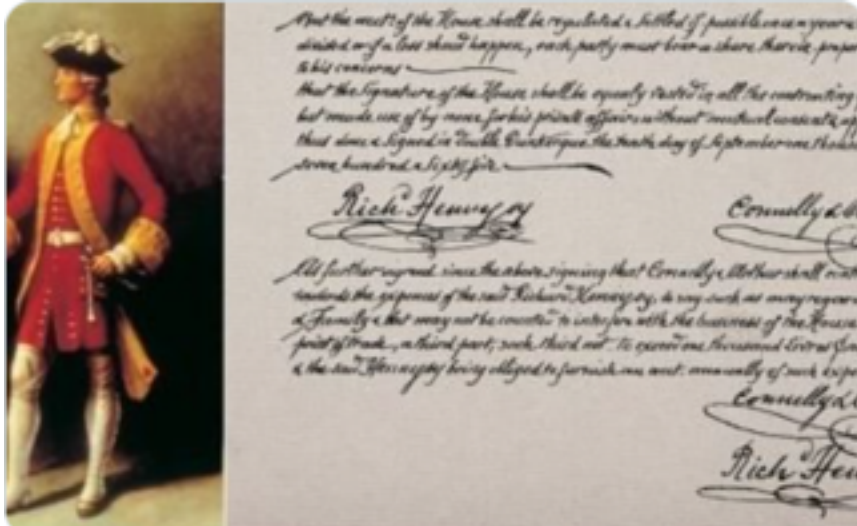 that the neat of the House shall be regulated & settled if possible once a year &
divided or if a loss should happen, each party must bear a share therein,
to his concerns
that the Signature of the House shall be equaly vested in all the contracting
but made use of by none for his private affairs without mutual consent
thus done & Signed in double Dunkerque the tenth day of September one
seven hundred & Sixty five
Rich^d Hennessy
Connelly &
further agreed since the above signing that Connelly & Arthur shall
towards the expences of the said Richard Hennessy, to say such as may
& Family & that may not be counted to interfere with the business of the House
point of trade, a third part, such third not to exceed one thousand Livres
& the said Hennessy being obliged to furnish an annually of such
Connelly &
Rich^d